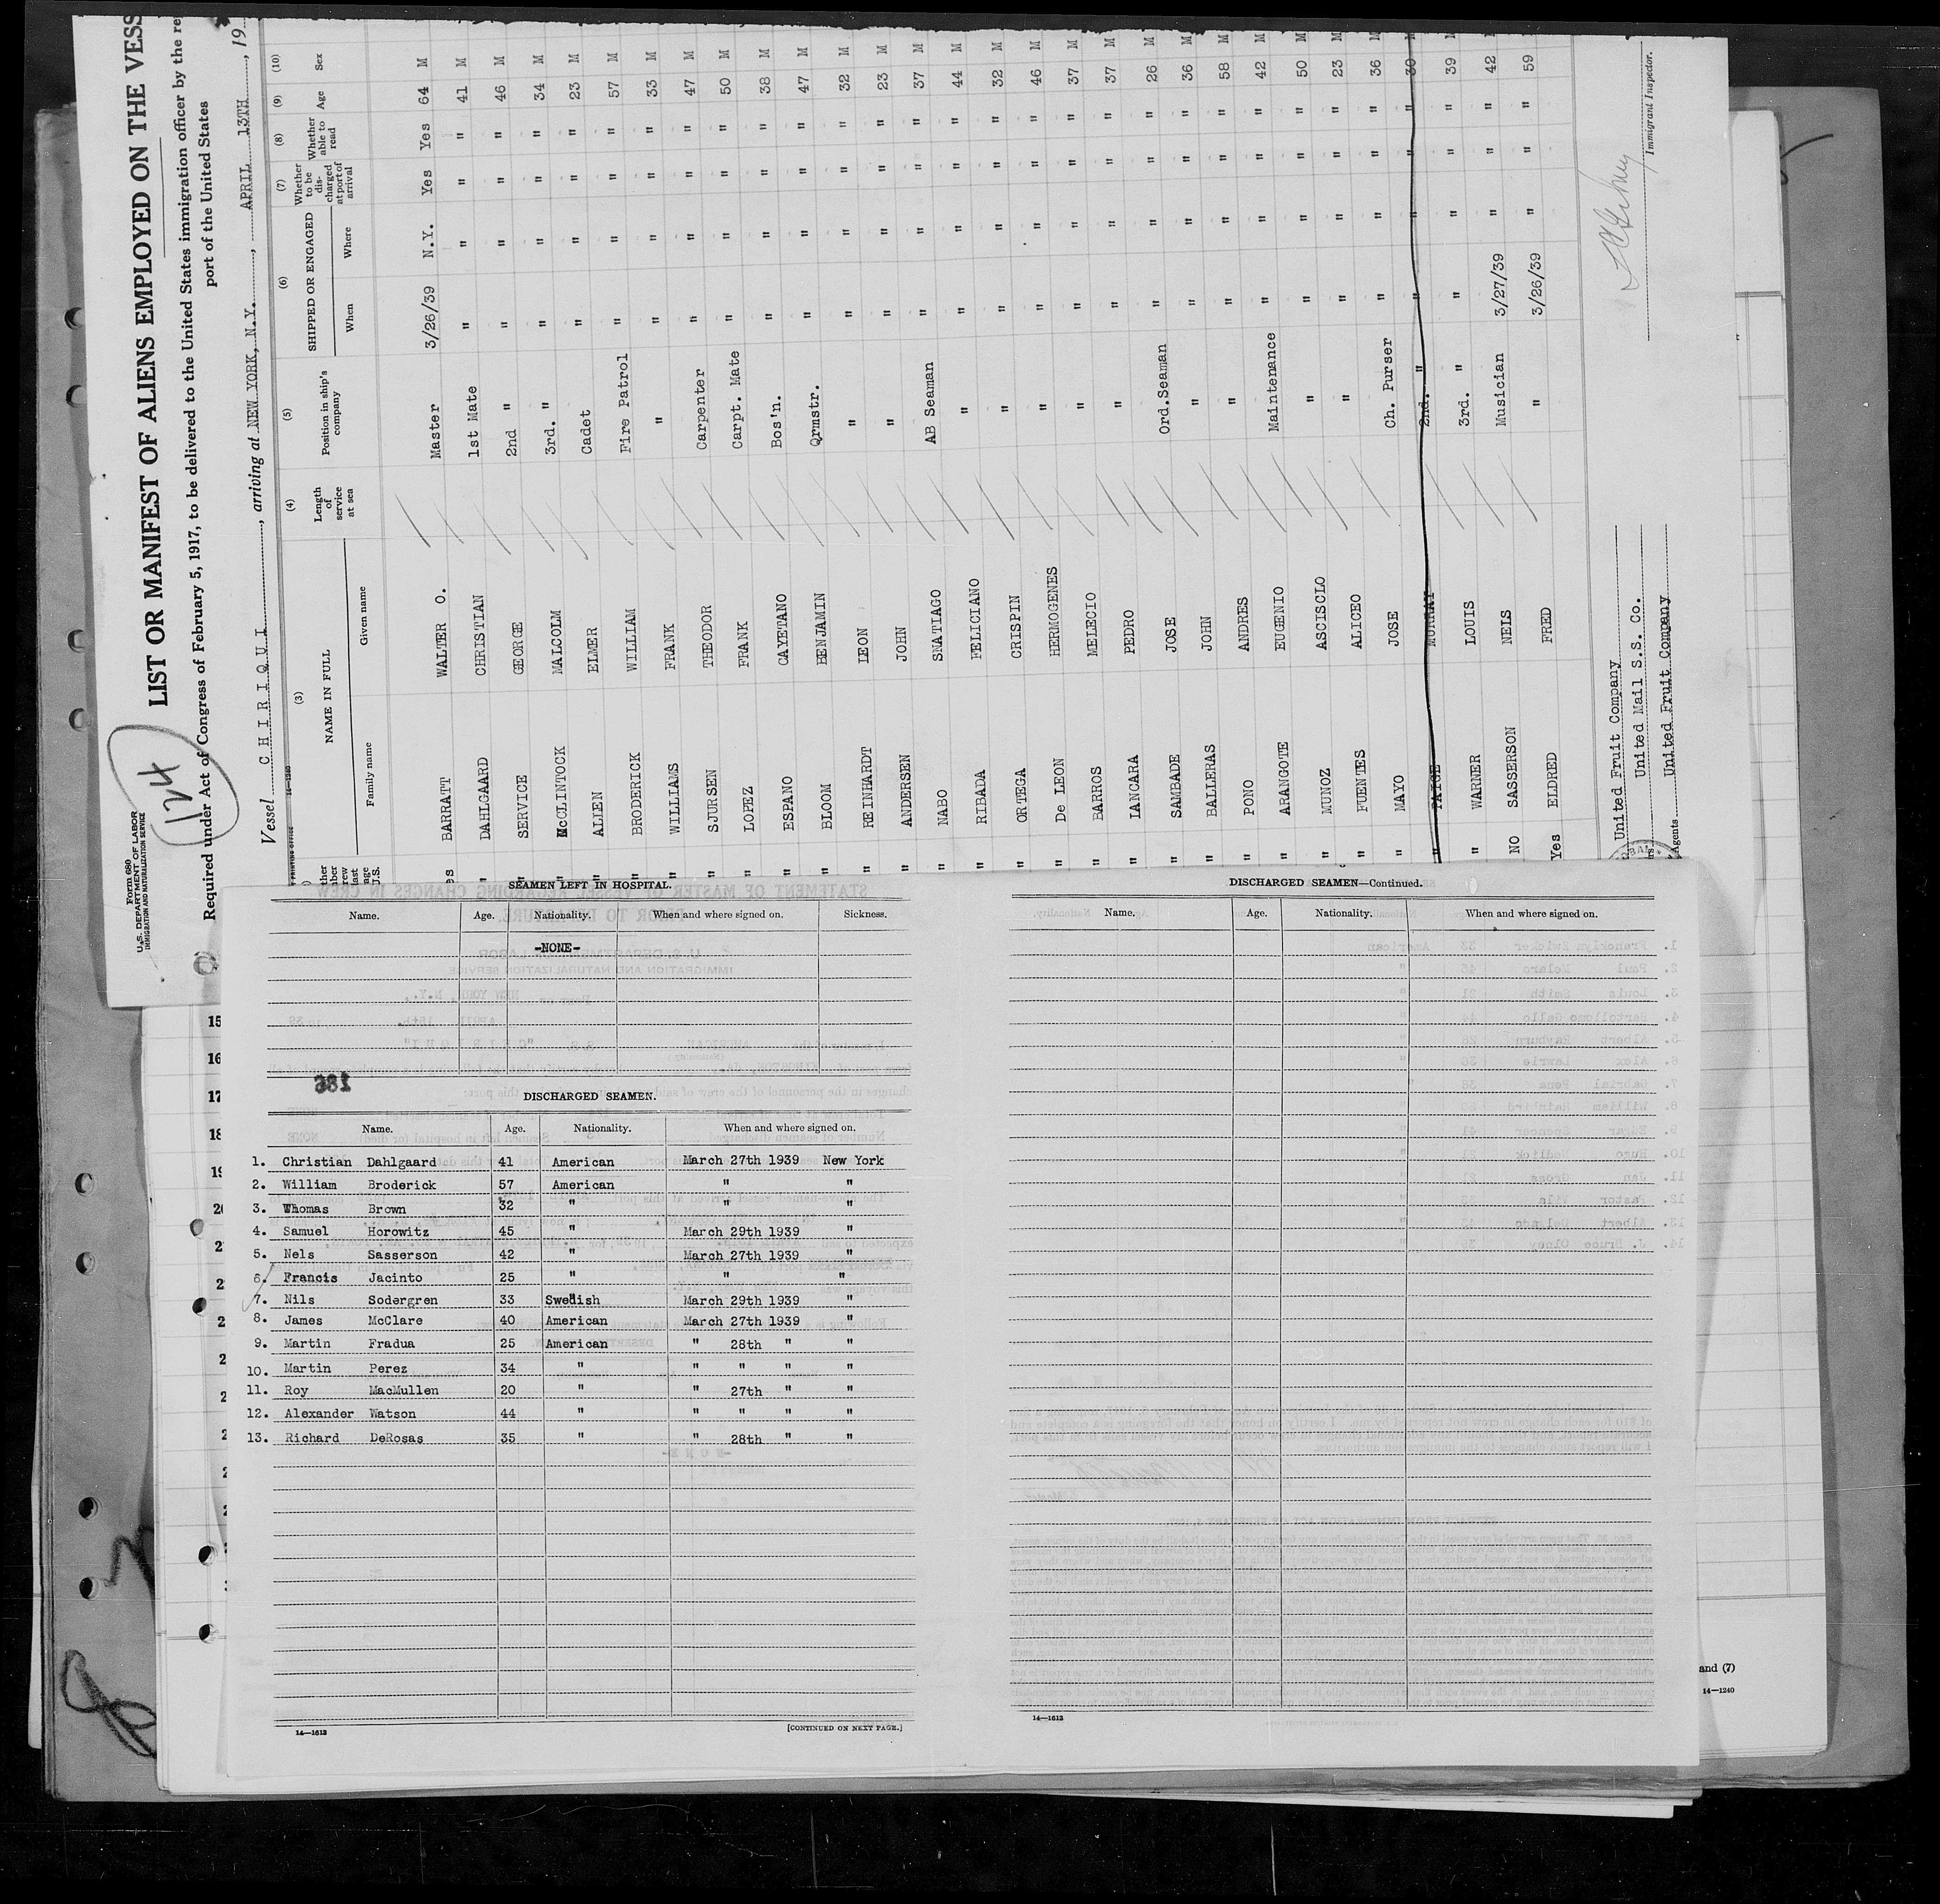 Form 680
U.S. DEPARTMENT OF LABOR
IMMIGRATION AND NATURALIZATION SERVICE
124
LIST OR MANIFEST OF ALIENS EMPLOYED ON THE VESS
Required under Act of Congress of February 5, 1917, to be delivered to the United States immigration officer by the re
port of the United States
Vessel CHIRIQUI, arriving at NEW YORK, N.Y., APRIL 13TH, 19
14—1240
(3) (4) (5) (6) (7) (8) (9) (10)
NAME IN FULL
Family name Given name
Length of service at sea
Position in ship's company
SHIPPED OR ENGAGED
When Where
Whether to be discharged at port of arrival
Whether able to read
Age Sex
es BARRATT WALTER O. Master 3/26/39 N.Y. Yes Yes 64 M
" DAHLGAARD CHRISTIAN 1st Mate " " " " 41 M
" SERVICE GEORGE 2nd " " " " " 46 M
" McCLINTOCK MALCOLM 3rd. " " " " " 34 M
" ALLEN ELMER Cadet " " " " 23 M
" BRODERICK WILLIAM Fire Patrol " " " " 57 M
" WILLIAMS FRANK " " " " " 33 M
" SJURSEN THEODOR Carpenter " " " " 47 M
" LOPEZ FRANK Carpt. Mate " " " " 50 M
" ESPANO CAYETANO Bos'n. " " " " 38 M
" BLOOM BENJAMIN Qrmstr. " " " " 47 M
" REINHARDT LEON " " " " " 32 M
" ANDERSEN JOHN " " " " " 23 M
" NABO SNATIAGO AB Seaman " " " " 37 M
" RIBADA FELICIANO " " " " " 44 M
" ORTEGA CRISPIN " " " " " 32 M
" De LEON HERMOGENES " " " " " 46 M
" BARROS MELECIO " " " " " 37 M
" LANCARA PEDRO " " " " " 37 M
" SAMBADE JOSE Ord.Seaman " " " " 26 M
" BALLERAS JOHN " " " " " 36 M
" PONO ANDRES " " " " " 58 M
" ARANGOTE EUGENIO Maintenance " " " " 42 M
" MUNOZ ASCISCLO " " " " " 50 M
" FUENTES ALICEO " " " " " 23 M
" MAYO JOSE Ch. Purser " " " " 36 M
" PAIGE MURRAY 2nd. " " " " " 30 M
" WARNER LOUIS 3rd. " " " " " 39 M
NO SASSERSON NELS Musician 3/27/39 " " " 42 M
Yes ELDRED FRED " 3/26/39 " " " 59 M
United Fruit Company
United Mail S.S. Co.
Agents United Fruit Company
Immigrant Inspector.
15
16
17
18
19
SEAMEN LEFT IN HOSPITAL.
Name. Age. Nationality. When and where signed on. Sickness.
-NONE-
DISCHARGED SEAMEN.
Name. Age. Nationality. When and where signed on.
1. Christian Dahlgaard 41 American March 27th 1939 New York
2. William Broderick 57 American " "
3. Thomas Brown 32 " " "
4. Samuel Horowitz 45 " March 29th 1939 "
5. Nels Sasserson 42 " March 27th 1939 "
6. Francis Jacinto 25 " " "
7. Nils Sodergren 33 Swedish March 29th 1939 "
8. James McClare 40 American March 27th 1939 "
9. Martin Fradua 25 American " 28th " "
10. Martin Perez 34 " " " " "
11. Roy MacMullen 20 " " 27th " "
12. Alexander Watson 44 " " " " "
13. Richard DeRosas 35 " " 28th " "
14—1613
[CONTINUED ON NEXT PAGE.]
DISCHARGED SEAMEN—Continued.
Name. Age. Nationality. When and where signed on.
14—1613
and (7)
14—1240